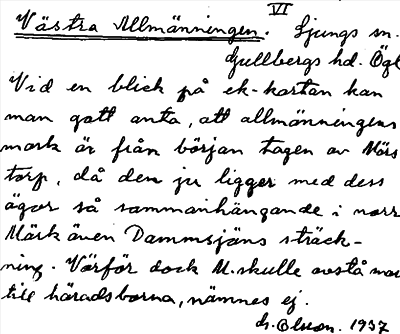 VI
Västra Allmänningen. Ljungs sn.
Gullbergs hd. Ögl
Vid en blick på ek-kartan kan
man gott anta, att allmänningens
mark är från början tagen av Mörs
torp, då den ju ligger med dess
ägor så sammanhängande i norr
Märk även Dammsjöns sträck-
ning. Varför dock M. skulle avstå mar
till häradsborna, nämnes ej.
Olsson. 1937